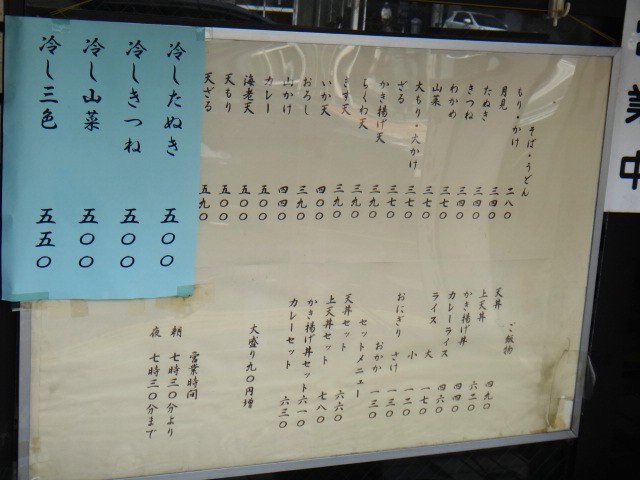 業中
そば・うどん
もり・かけ 二八〇
月見 三四〇
たぬき 三四〇
きつね 三四〇
わかめ 三七〇
山菜 三七〇
大もり・大かけ 三七〇
ざる 三七〇
かき揚げ天 三九〇
ちくわ天 三九〇
天 三九〇
いか天 四〇〇
おろし 三九〇
山かけ 四四〇
カレー 五〇〇
海老天 五〇〇
天もり 五〇〇
天ざる 五九〇
冷したぬき 五〇〇
冷しきつね 五〇〇
冷し山菜 五〇〇
冷し三色 五五〇
ご飯物
天丼 四九〇
上天丼 六二〇
かき揚げ丼 四四〇
カレーライス 四六〇
ライス 大 一七〇
小 一二〇
おにぎり さけ 一三〇
おかか 一三〇
セットメニュー
天丼セット 六六〇
上天丼セット 七八〇
かき揚げ丼セット 六一〇
カレーセット 六三〇
大盛り九〇円増
営業時間
朝 七時三〇分より
夜 七時三〇分まで